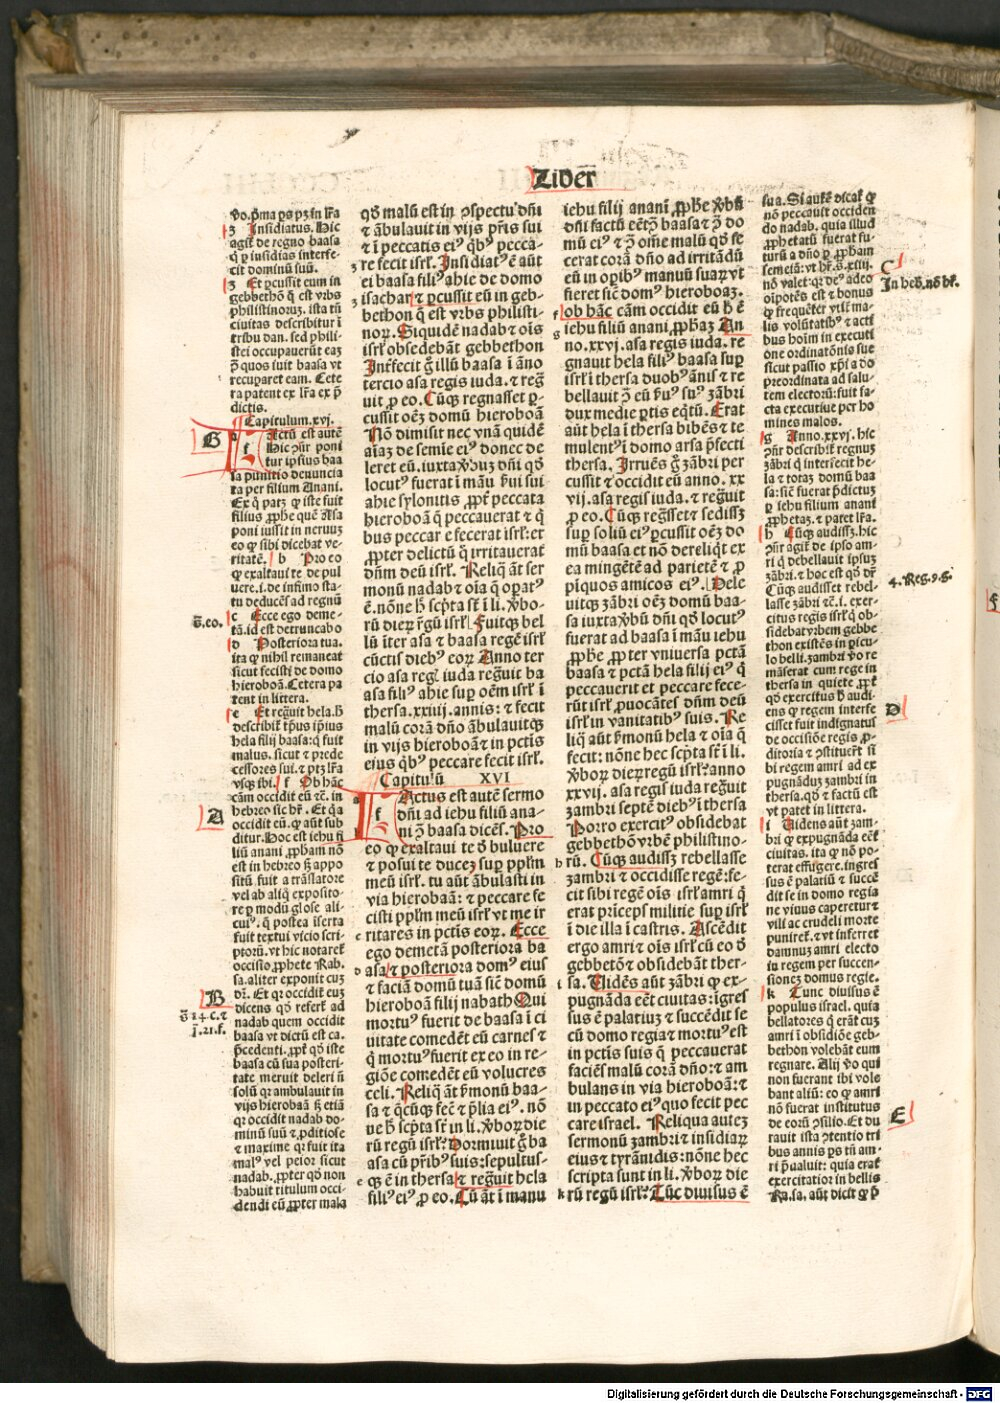 Liber
ꝟo. pͥma ps pꝫ in lr̄a
ʒ Insidiatus. Hic
agit̄ de regno baasa
ꝙ ꝑ insidias interfe-
cit dominū suū.
ʒ Et ꝑcussit eum in
gebbethō q̄ est vrbs
philistinoꝝ. ista tn̄
ciuitas describitur ī
tribu dan. sed phili-
stei occupauerūt eaꝫ
ꝓ̄ quos iuit baasa vt
recuꝑaret eam. Cete
ra patent ex lr̄a ex p̄
dictis.
Capitulum. xvj.
Factū est autē
Hic ↄñr poni
tur ipsius baa
sa punitio denuncia
ta per filium Anani.
Ex q̄ patꝫ ꝙ iste fuit
filius ꝓphe quē Asa
poni iussit in neruuꝫ
eo ꝙ sibi dicebat ve-
ritatē. b Pro eo
ꝙ exaltaui te de pul
uere. i. de infimo sta
tu deducēs ad regnū
c Ecce ego deme-
tā. id est detruncabo
d Posteriora tua.
ita ꝙ nihil remaneat
sicut fecisti de domo
hieroboā. Cetera pa
tent in littera.
e Et regͣuit hela. h̄
describit̄ tp̄us ip̄ius
hela filij baasa: q̄ fuit
malus. sicut ⁊ prede
cessores sui. ⁊ ptꝫ lr̄a
vsqꝫ ibi. f Ob hāc
cām occidit eū ⁊c̄. in
hebreo sic hr̄. Et q̄a
occidit eū. ꝙ aūt sub
ditur. Hoc est iehu fi
liū anani. ꝓpham nō
est in hebreo sꝫ appo
sitū fuit a trāslatore
vel ab aliq̄ exposito-
re ꝑ modū glose ali-
cuiꝰ. q̄ postea īserta
fuit textui vicio scri-
ptorū. vt hic notaret̄
occisio ꝓphete Rab.
sa. aliter exponit cuꝫ
dr̄. Et qꝛ occidit euꝫ
dicens ꝙ refert̄ ad
nadab quem occidit
baasa vt dictū est ca.
p̄cedenti. ꝓpt̄ qd̄ iste
baasa cū sua posteri-
tate meruit deleri ñ
solū qꝛ ambulauit in
vijs hierobaā sꝫ etiā
qꝛ occidit nadab do-
minū suū ⁊ ꝓditiose
⁊ maxime qꝛ fuit ita
malꝰ vel peior sicut
nadab. ꝓpter qd̄ non
habuit titulum occi-
dendi eū ꝓpter mala
qd̄ malū est in ↄspectu dñi
⁊ ābulauit in vijs pr̄is sui
⁊ ī peccatis eiꝰ qͥbꝰ pecca-
re fecit isrl̄. Insidiatꝰ ē aūt
ei baasa filiꝰ ahie de domo
isachar ⁊ ꝑcussit eū in geb-
bethon q̄ est vrbs philisti-
noꝝ. Siquidē nadab ⁊ oīs
isrl̄ obsedebāt gebbethon
Interfecit ḡ illū baasa ī āno
tercio asa regis iuda. ⁊ regͣ
uit ꝓ eo. Cūqꝫ regnasset ꝑ-
cussit oēꝫ domū hieroboā
Nō dimisit nec vnā quidē
aīaꝫ de semie eiꝰ donec de
leret eū. iuxta ꝟbuꝫ dñi qd̄
locutꝰ fuerat ī māu ẜui sui
ahie sylonitis ꝓpt̄ peccata
hieroboā q̄ peccauerat ⁊ qͥ
bus peccare fecerat isrl̄: et
ꝓpter delictū q̄ irritauerat
dñm deū isrl̄. Reliq̄ āt ser
monū nadab ⁊ oīa q̄ opatꝰ
ē. nōne h̄ scp̄ta st̄ ī li. ꝟbo-
rū dieꝝ rgū isrl̄. Fuitqꝫ bel
lū īter asa ⁊ baasa regē isrl̄
cūctis diebꝰ eoꝝ Anno ter
cio asa regͣ iuda regͣuit ba
asa filiꝰ ahie suꝑ oēm isrl̄ ī
thersa. xxiiij. annis: ⁊ fecit
malū corā dño ābulauitqꝫ
in vijs hieroboā ⁊ in pctīs
eius qͥbꝰ peccare fecit isrl̄.
Capitulū XVI
Factus est autē sermo
dñi ad iehu filiū ana-
ni ↄ̄ baasa dicēs. Pro
eo ꝙ exaltaui te ð buluere
⁊ posui te duceꝫ suꝑ ppl̄m
meū isrl̄. tu aūt ābulasti in
via hierobaā: ⁊ peccare fe
cisti ppl̄m meū isrl̄ vt me ir
ritares in pctīs eoꝝ. Ecce
ego demetā posteriora ba
asa ⁊ posteriora domꝰ eius
⁊ faciā domū tuā sic̄ domū
hieroboā filij nabath Qui
mortuꝰ fuerit de baasa ī ci
uitate comedēt eū canes ⁊
q̄ mortuꝰ fuerit ex eo in re-
giōe comedēt eū volucres
celi. Reliq̄ āt ẜmonū baa-
sa ⁊ q̄cūqꝫ fec̄ ⁊ p̄lia eiꝰ. nō
ne h̄ scp̄ta st̄ in li. ꝟboꝝ die
rū regū isrl̄? Dormiuit ḡ ba
asa cū pr̄ibꝰ suis: sepultus-
qꝫ ē in thersa ⁊ regͣuit hela
filiꝰ eiꝰ ꝓ eo. Cū āt ī manu
iehu filij anani ꝓphe ꝟbū
dñi factū eēt ↄ̄ baasa ⁊ ↄ̄ do
mū eiꝰ ⁊ ↄ̄ om̄e malū qd̄ fe
cerat corā dño ad irritādū
eū in opibꝰ manuū suaꝝ vt
fieret sic̄ domꝰ hieroboaꝫ.
ob hāc cām occidit eū h̄ ē
iehu filiū anani ꝓphaꝫ An
no. xxvj. asa regis iuda. re
gnauit hela filiꝰ baasa suꝑ
isrl̄ ī thersa duobꝰ ānis ⁊ re
bellauit ↄ̄ eū ẜuꝰ suꝰ zābri
dux medie ꝑtis eqͥtū. Erat
aūt hela ī thersa bibēs ⁊ te
mulentꝰ ī domo arsa p̄fecti
thersa. Irruēs ḡ zābri per
cussit ⁊ occidit eū anno. xx
vij. asa regis iuda. ⁊ regͣuit
ꝓ eo. Cūqꝫ regͣsset ⁊ sedissꝫ
suꝑ soliū eiꝰ ꝑcussit oēꝫ do
mū baasa et nō dereliqͥt ex
ea mingētē ad parietē ⁊ ꝓ
piquos amicos eiꝰ. Dele
uitqꝫ zābri oēꝫ domū baa-
sa iuxta ꝟbū dñi qd̄ locutꝰ
fuerat ad baasa ī māu iehu
ꝓphe ꝓpter vniuersa pctā
baasa ⁊ pctā hela filij eiꝰ q̄
peccauerit et peccare fece-
rūt isrl̄ ꝓuocātes dñm deū
isrl̄ in vanitatibꝰ suis. Re
liq̄ aūt ẜmonū hela ⁊ oīa q̄
fecit: nōne hec scp̄ta st̄ ī li.
ꝟboꝝ dieꝝ regū isrl̄? anno
xxvij. asa regis iuda regͣuit
zambri septē diebꝰ ī thersa
Porro exercitꝰ obsidebat
gebbethō vrbē philistino-
rū. Cūqꝫ audissꝫ rebellasse
zambri ⁊ occidisse regē: fe-
cit sibi regē oīs isrl̄ amri q̄
erat priceps militie suꝑ isrl̄
ī die illa ī castris. Ascēdit
ergo amri ⁊ oīs isrl̄ cū eo ð
gebbetō ⁊ obsidebāt ther-
sa. Uidēs aūt zābri ꝙ ex-
pugnāda eēt ciuitas: īgres
sus ē palatiuꝫ ⁊ succēdit se
cū domo regia ⁊ mortuꝰ est
in pctīs suis q̄ peccauerat
faciēs malū corā dño: ⁊ am
bulans in via hieroboā: ⁊
in peccato eiꝰ quo fecit pec
care israel. Reliqua auteꝫ
sermonū zambri ⁊ insidiaꝝ
eius ⁊ tyrānidis: nōne hec
scripta sunt in li. ꝟboꝝ die
rū regū isrl̄? Tūc diuisus ē
sua. Si autē dicat̄ ꝙ
nō peccauit occiden
do nadab. quia illud
ꝓphetatū fuerat fu-
turū a dño ꝑ ꝓpham
semeiā: vt hr̄. s̄. xiiij.
nō valet: qꝛ de adeo
oīpotēs est ⁊ bonus
ꝙ frequēter vtit̄ ma-
lis volūtatibꝰ ⁊ acti
bus hoīm in executi
one ordinatōnis sue
sicut passio xp̄i a do
preordinata ad salu-
tem electorū: fuit fa-
cta executiue per ho
mines malos.
g Anno. xxvj. hic
ↄñr describit̄ regnuꝫ
zābri q̄ intersecit he-
la ⁊ totaꝫ domū baa
sa: sic̄ fuerat p̄dictuꝫ
ꝑ iehu filium anani
ꝓphetaꝫ. ⁊ patet lr̄a.
h Cūqꝫ audissꝫ. hic
ↄñr agit̄ de ipso am-
ri q̄ debellauit ipsuꝫ
zābri. ⁊ hoc est qd̄ dr̄
Cūqꝫ audisset rebel-
lasse zābri ⁊c̄. i. exer-
citus regis isrl̄ q̄ ob-
sidebat vrbem gebbe
thon existēs in ꝑicu-
lo belli. zambri ꝟo re
māserat cum rege in
thersa in quiete. ꝓpt̄
qd̄ exercitus h̄ audi-
ens ꝙ regem interfe
cisset fuit indignatus
de occisiōe regis ꝓ-
ditoria ⁊ ↄstituert̄ si
bi regem amri ad ex
pugnāduꝫ zambri in
thersa. qd̄ ⁊ factū est
vt patet in littera.
i Uidens aūt zam-
bri ꝙ expugnāda eēt
ciuitas. ita ꝙ nō po-
terat effugere. ingres
sus ē palatiū ⁊ succē
dit se in domo regia
ne viuus caperetur ⁊
vili ac crudeli morte
puniret̄. ⁊ vt inferret
damnuꝫ amri electo
in regem per succen-
sionez domus regie.
k Tunc diuisus ē
populus israel. quia
bellatores q̄ erāt cuꝫ
amri ī obsidiōe geb-
bethon volebāt eum
regnare. Alij ꝟo qui
non fuerant ibi vole
bant aliū: eo ꝙ amri
nō fuerat institutus
de eorū ↄsilio. Et du
rauit ista ↄtentio tri
bus annis ps tn̄ am-
ri p̄ualuit: quia erat
exercitatior in bellis
Ra. sa. aūt dicit ꝙ p̄
G
s̄. eo.
A
B
s̄ 14. c. ⁊
ī. 21. f.
C
In heb. nō hr̄.
4. Reg. 9. g.
D
E
Digitalisierung gefördert durch die Deutsche Forschungsgemeinschaft - DFG